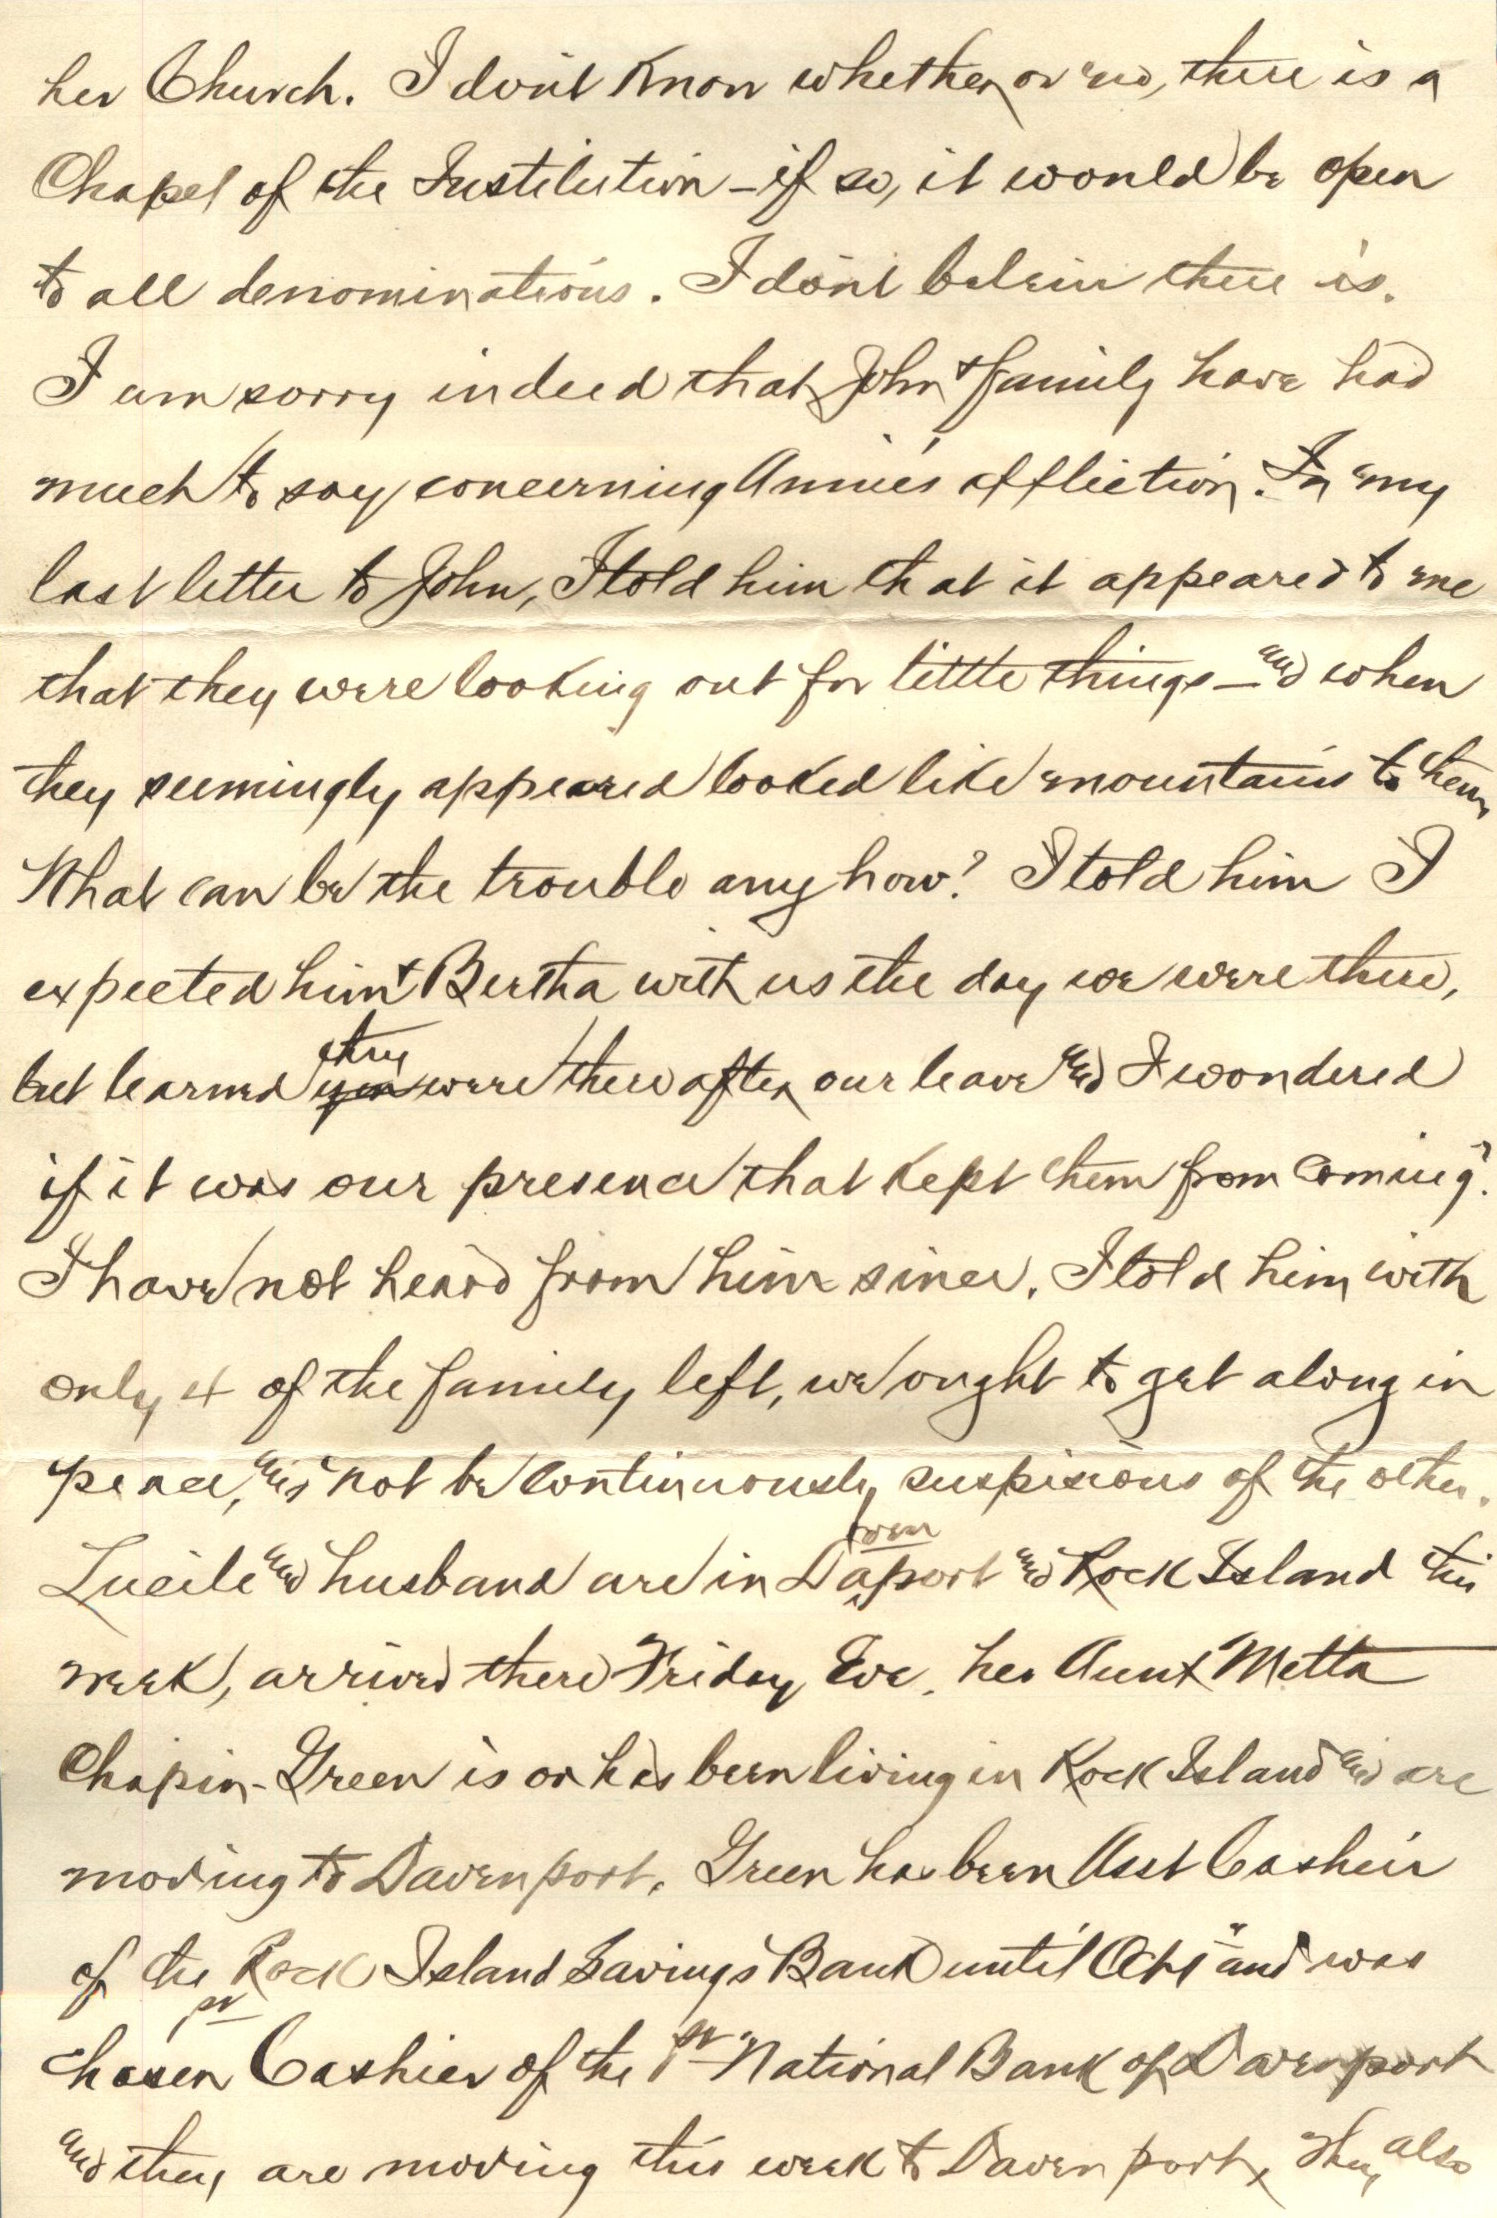 her Church. I don't know whether or no, there is a
Chapel of the Institution - if so, it would be open
to all denominations. I don't believe there is.
I am sorry indeed that John & family have had
much to say concerning Annie's affliction. In my
last letter to John, I told him that it appeared to me
that they were looking out for little things - and when
they seemingly appeared looked like mountains to them
What can be the trouble any how? I told him I
expected him & Bertha with us the day we were there,
but learned you they were there after our leave and I wondered
if it was our presence that kept them from coming?
I have not heard from him since. I told him with
only 4 of the family left, we ought to get along in
peace, and not be continuously suspicious of the other.
Lucile and husband are in Davenport and Rock Island this
week, arrived there Friday Eve. her Aunt Metta
Chapin-Green is or has been living in Rock Island and are
moving to Davenport. Green has been Asst Cashier
of the Rock Island Savings Bank until Oct 1" and was
chosen Cashier of the 1st National Bank of Davenport
and they are moving this week to Davenport, They also